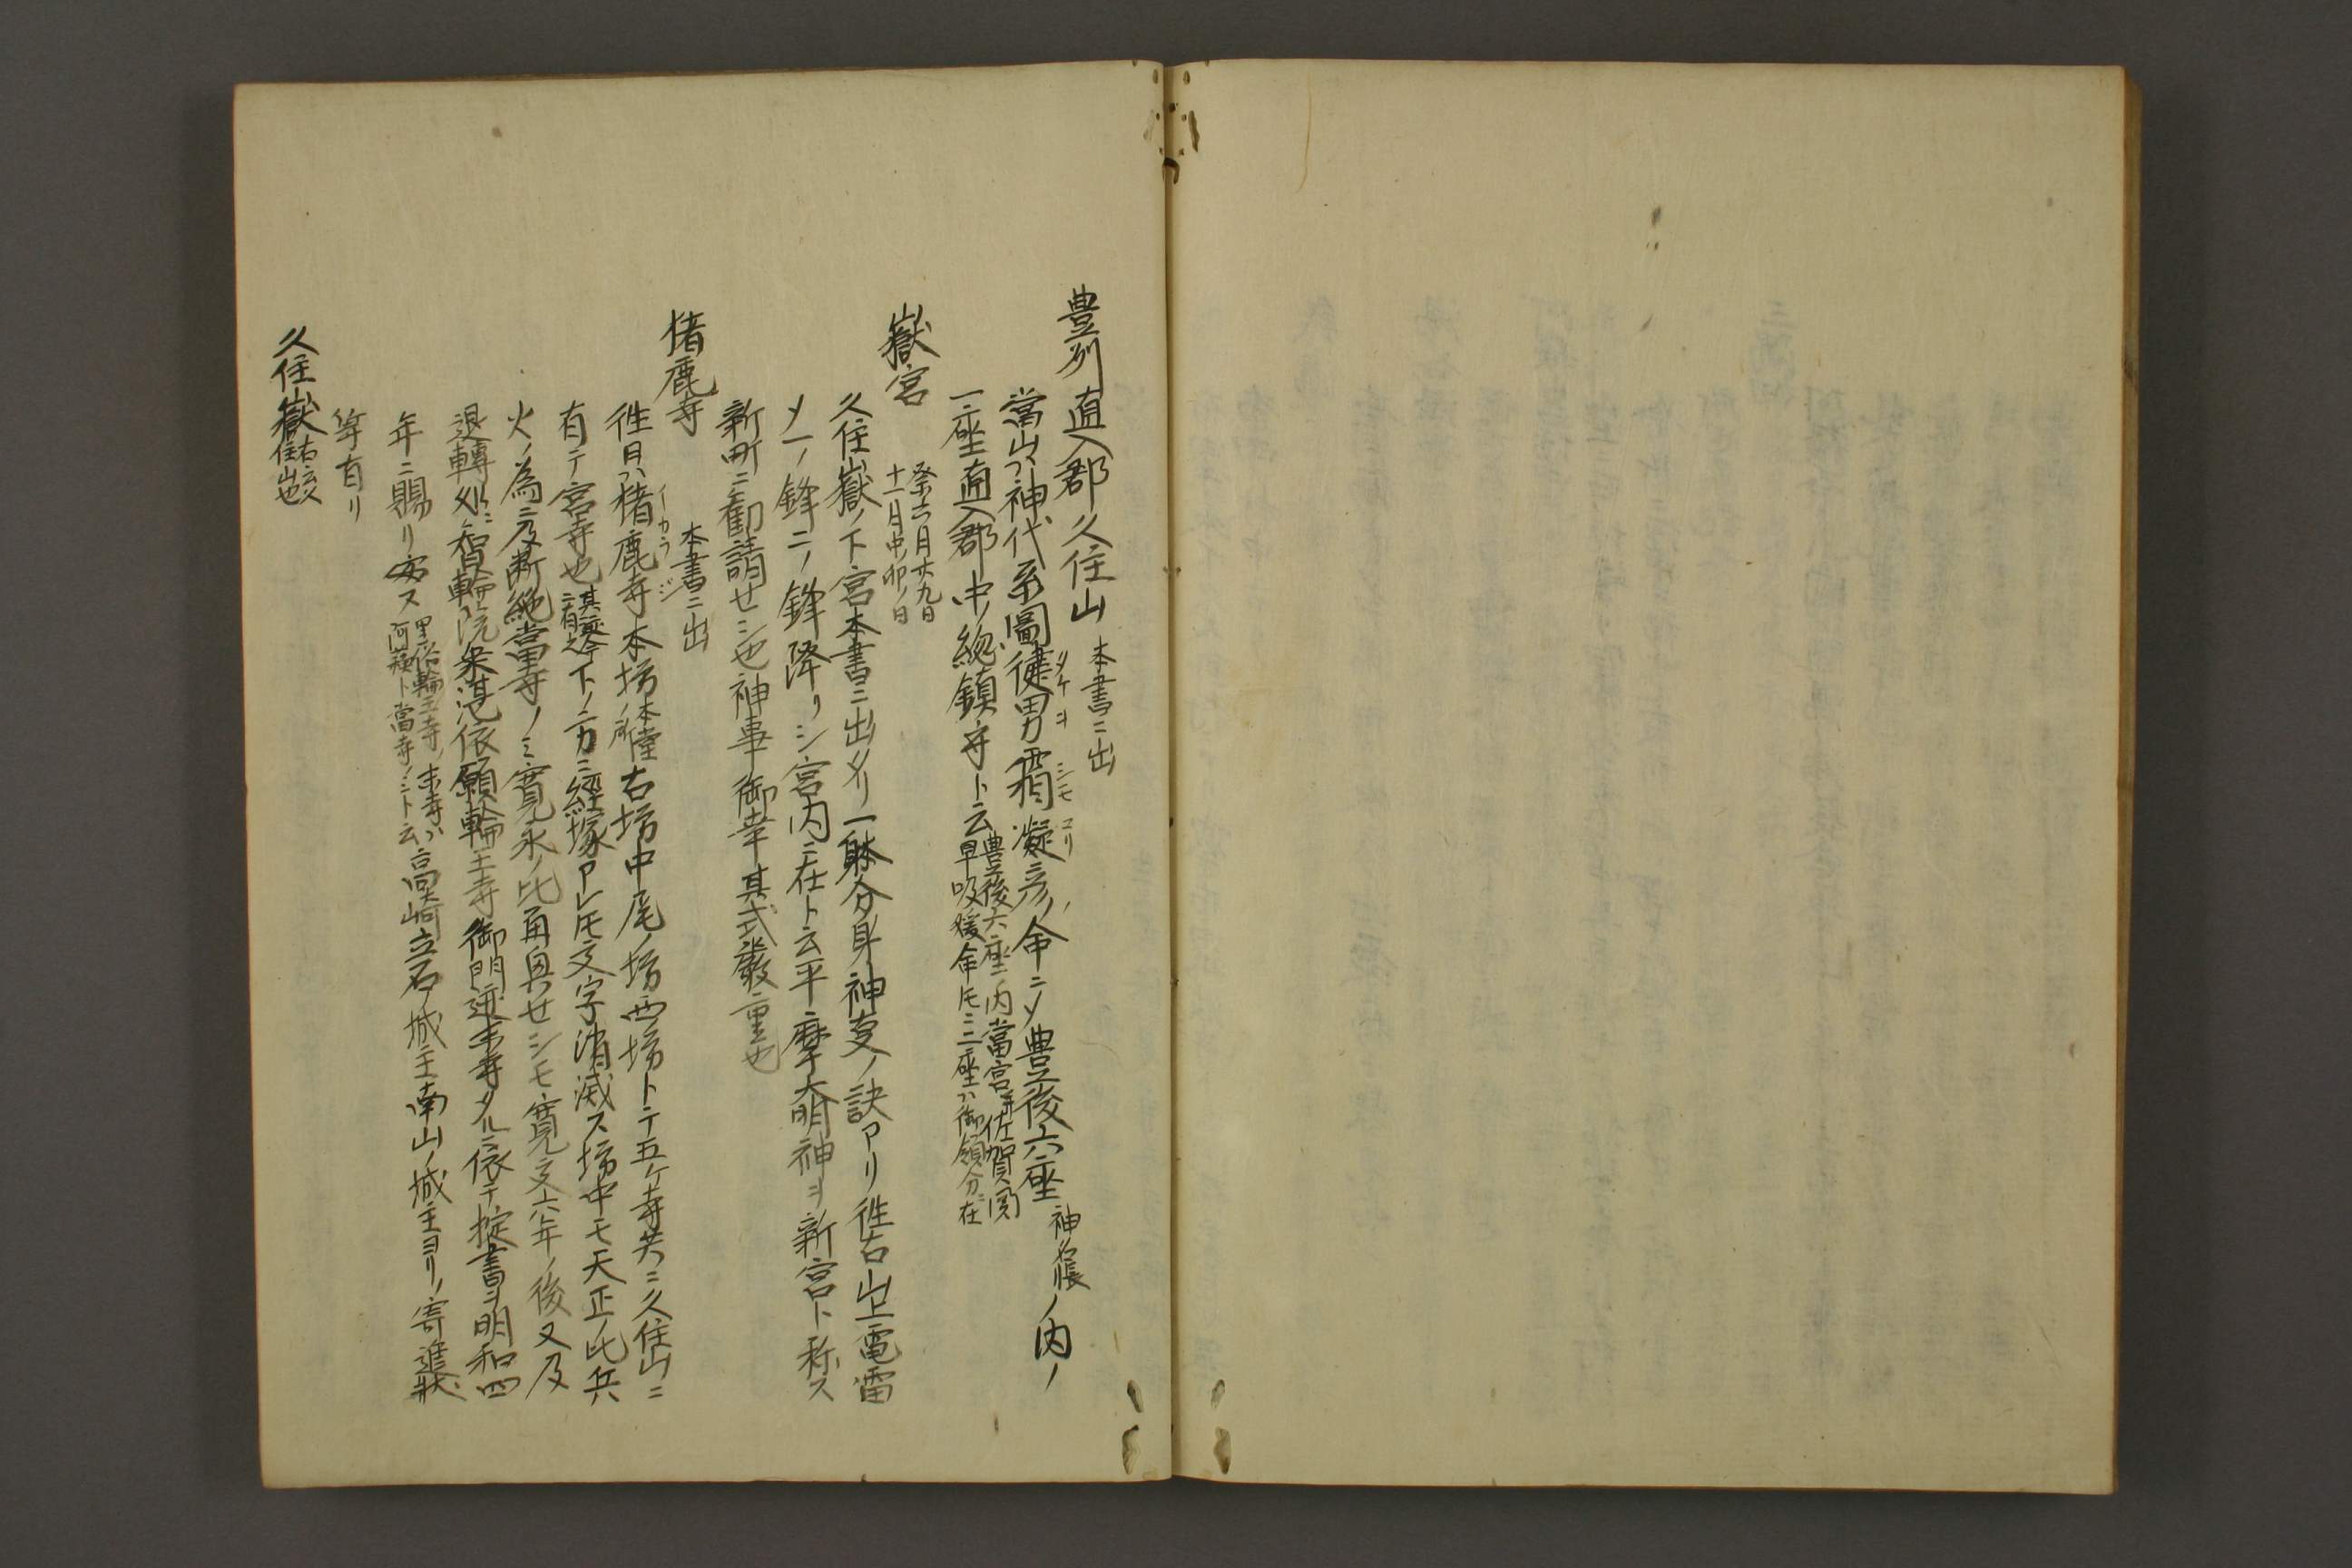 豊州直入郡久住山 本書ニ出
當山ハ神代系圖健男霜凝彦ノ命ニメ豊後六座 神名帳ノ内ノ
タケヲ シモ コリ
一座直入郡中ノ総鎮守ト云 豊後六座ノ内當宮并佐賀関
早吸媛命トモニ三座ハ御領分ニ在
嶽宮 祭六月廿九日
十一月中ノ卯ノ日
久住嶽ノ下宮本書ニ出タリ一躰分身ノ神変ノ訣アリ徃古山上電雷
メ一ノ鋒二ノ鋒降リシ宮内ニ在ト云平ニ摩大明神ヲ新宮ト称ス
新町ニ勸請セシ也神事御幸其式嚴重也
猪鹿寺 本書ニ出
イカラジ
徃日ハ猪鹿寺本坊ノ本堂ノ所 右坊中尾ノ坊西坊トテ五ケ寺共ニ久住山ニ
有テ宮寺也 其蹟今ニ有之 下ノ方ニ經塚アレトモ文字消滅ス坊中モ天正ノ比兵
火ノ為ニ及断絶當寺ノミ寛永ノ比再興セシモ寛文六年ノ後又及
退轉処ニ智輪院衆湛依願輪王寺御門迹末寺タルニ依テ掟書ヲ明和四
年ニ賜リ安ス 里俗輪王寺ノ末寺ハ
阿蘓ト當寺ノミト云 高崎立石ノ城主南山ノ城主ヨリノ寄進狀
等有リ
久住嶽 右云久
住山也